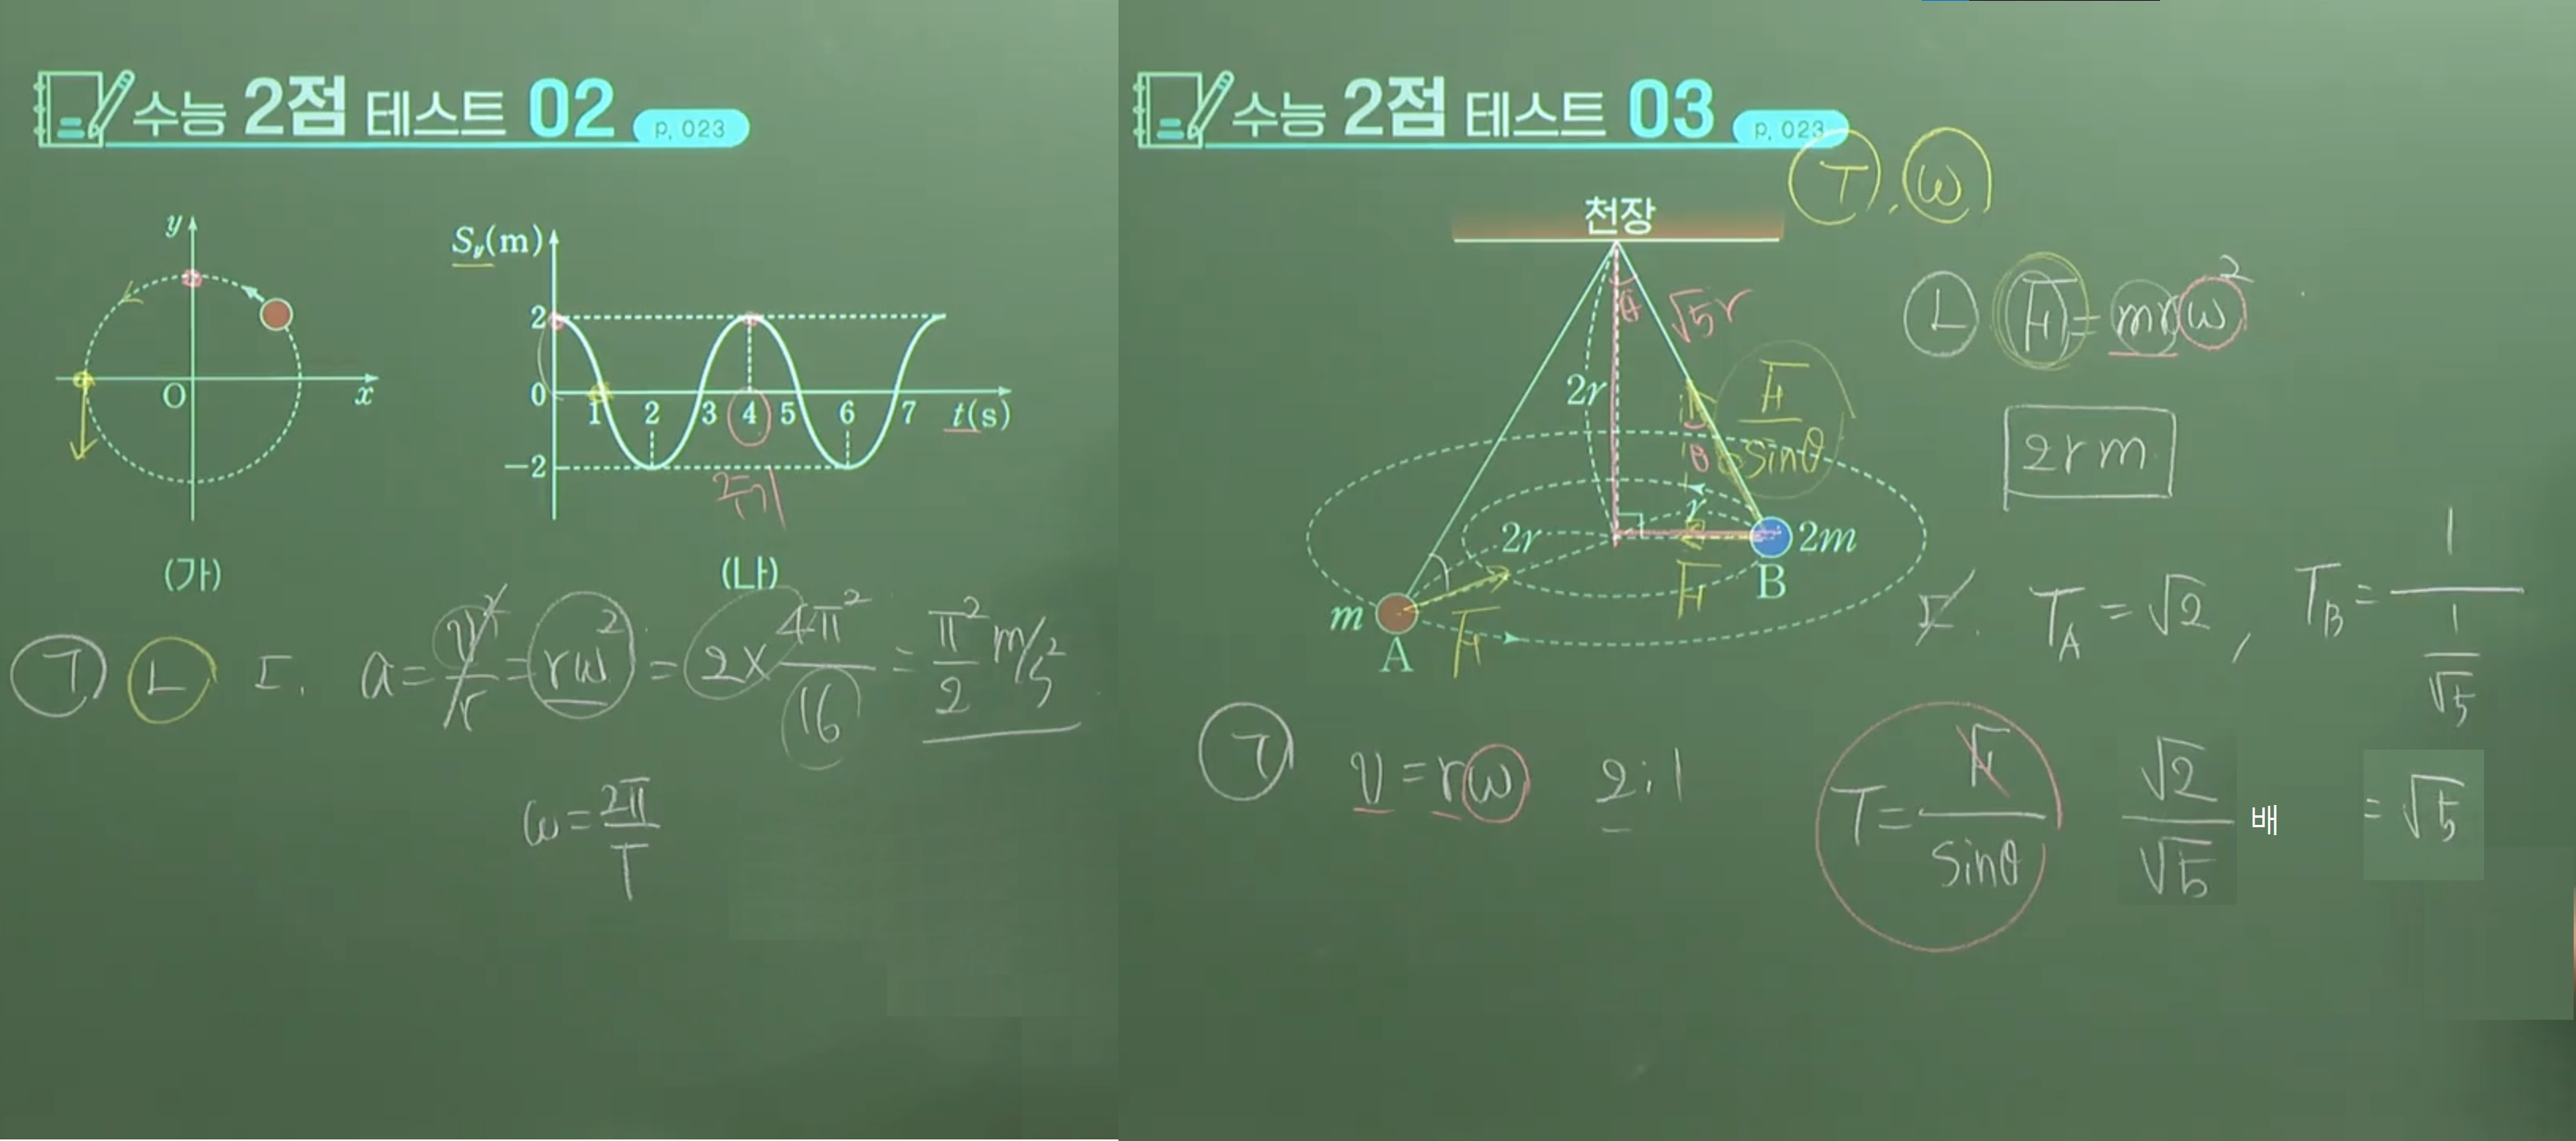 수능 2점 테스트 02 p. 023
y
O
x
(가)
S_y(m)
2
0
-2
1 2 3 4 5 6 7 t(s)
주기
(나)
ㄱ ㄴ ㄷ. a = v²/r = rω² = 2 × 4π²/16 = π²/2 m/s²
ω = 2π/T
수능 2점 테스트 03 p. 023
ㄱ, ω
천장
θ
√5r
2r
F/sinθ
θ
r
2r
F
2m
B
m
A
F
ㄴ F = mrω²
2rm
ㄷ. T_A = √2, T_B = 1/(1/√5)
= √5
ㄱ v = rω 2 : 1
T = F/sinθ
√2/√5 배